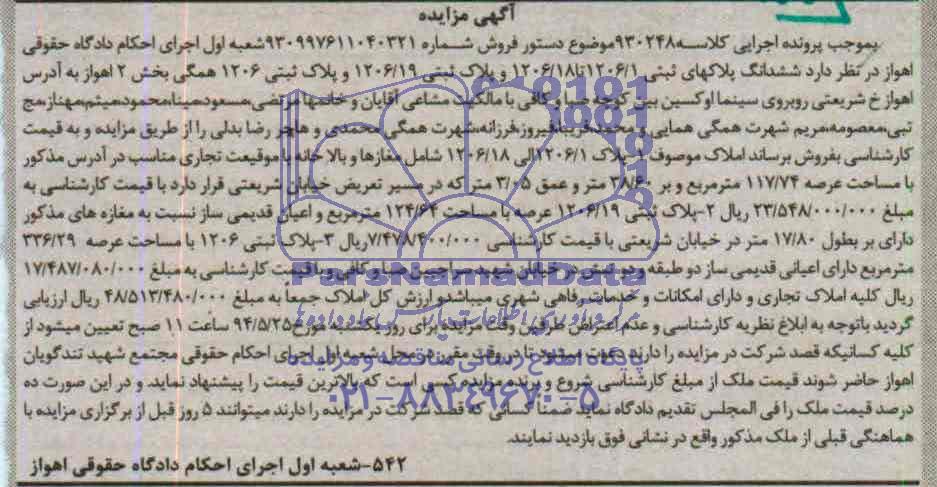 آگهی مزایده
بموجب پرونده اجرایی کلاسه ۹۳۰۲۴۸موضوع دستور فروش شماره ۹۳۰۹۹۷۶۱۱۰۴۰۳۲۱شعبه اول اجرای احکام دادگاه حقوقی
اهواز در نظر دارد ششدانگ پلاکهای ثبتی ۱۲۰۶/۱تا۱۲۰۶/۱۸ و پلاک ثبتی ۱۲۰۶/۱۹ و پلاک ثبتی ۱۲۰۶ همگی بخش ۲ اهواز به آدرس
اهواز خ شریعتی روبروی سینما اوکسین بین کوچه صبا و کافی با مالکیت مشاعی آقایان و خانمها مرتضی،مسعود،مینا،محمود،میثم،مهناز،مج
تبی،معصومه،مریم شهرت همگی همایی و محمد،فریبا،فیروز،فرزانه،شهرت همگی محمدی و هاجر رضا بدلی را از طریق مزایده و به قیمت
کارشناسی بفروش برساند املاک موصوف ۱-پلاک ۱۲۰۶/۱الی ۱۲۰۶/۱۸ شامل مغازها و بالا خانه با موقعیت تجاری مناسب در آدرس مذکور
با مساحت عرصه ۱۱۷/۷۴ مترمربع و بر ۳۸/۶۰ متر و عمق ۳/۰۵ متر که در مسیر تعریض خیابان شریعتی قرار دارد با قیمت کارشناسی به
مبلغ ۲۳/۵۴۸/۰۰۰/۰۰۰ ریال ۲-پلاک ثبتی ۱۲۰۶/۱۹ عرصه با مساحت ۱۲۴/۶۴ مترمربع و اعیان قدیمی ساز نسبت به مغازه های مذکور
دارای بر بطول ۱۷/۸۰ متر در خیابان شریعتی با قیمت کارشناسی ۷/۴۷۸/۴۰۰/۰۰۰ریال ۳-پلاک ثبتی ۱۲۰۶ با مساحت عرصه ۳۳۶/۲۹
مترمربع دارای اعیانی قدیمی ساز دو طبقه و دو نبش در خیابان شهید سراجیین صبا و کافی و با قیمت کارشناسی به مبلغ ۱۷/۴۸۷/۰۸۰/۰۰۰
ریال کلیه املاک تجاری و دارای امکانات و خدمات رفاهی شهری میباشد و ارزش کل املاک جمعاً به مبلغ ۴۸/۵۱۳/۴۸۰/۰۰۰ ریال ارزیابی
گردید باتوجه به ابلاغ نظریه کارشناسی و عدم اعتراض طرفین وقت مزایده برای روز یکشنبه مورخ ۹۴/۵/۲۵ ساعت ۱۱ صبح تعیین میشود از
کلیه کسانیکه قصد شرکت در مزایده را دارند دعوت میشود تا در وقت مقرر در محل شعبه اول اجرای احکام حقوقی مجتمع شهید تندگویان
اهواز حاضر شوند قیمت ملک از مبلغ کارشناسی شروع و برنده مزایده کسی است که بالاترین قیمت را پیشنهاد نماید. و در این صورت ده
درصد قیمت ملک را فی المجلس تقدیم دادگاه نماید ضمناً کسانی که قصد شرکت در مزایده را دارند میتوانند ۵ روز قبل از برگزاری مزایده با
هماهنگی قبلی از ملک مذکور واقع در نشانی فوق بازدید نمایند.
۵۴۲-شعبه اول اجرای احکام دادگاه حقوقی اهواز
ParsNamadData
پایگاه اطلاع رسانی مناقصه و مزایده
۰۲۱-۸۸۳۴۹۶۷۰-۵